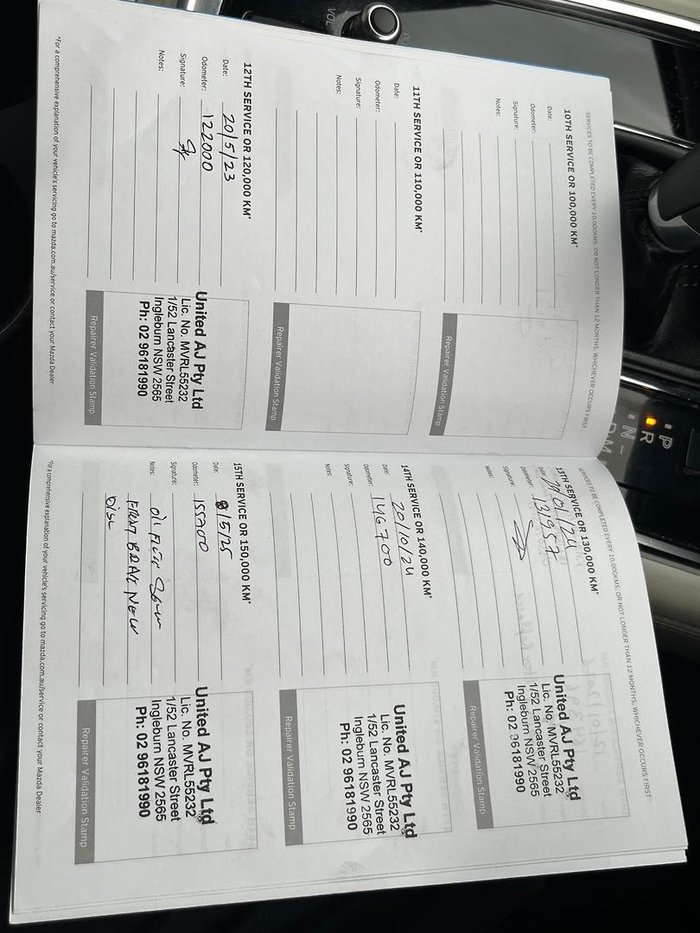 SERVICES TO BE COMPLETED EVERY 10,000KMS, OR NOT LONGER THAN 12 MONTHS, WHICHEVER OCCURS FIRST
10TH SERVICE OR 100,000 KM*
Date:
Odometer:
Signature:
Notes:
Repairer Validation Stamp
11TH SERVICE OR 110,000 KM*
Date:
Odometer:
Signature:
Notes:
Repairer Validation Stamp
12TH SERVICE OR 120,000 KM*
Date: 20/5/23
Odometer: 122000
Signature:
Notes:
United AJ Pty Ltd
Lic. No. MVRL55232
1/52 Lancaster Street
Ingleburn NSW 2565
Ph: 02 96181990
Repairer Validation Stamp
*For a comprehensive explanation of your vehicle's servicing go to mazda.com.au/service or contact your Mazda Dealer
SERVICES TO BE COMPLETED EVERY 10,000KMS, OR NOT LONGER THAN 12 MONTHS, WHICHEVER OCCURS FIRST
13TH SERVICE OR 130,000 KM*
Date: /01/24
Odometer: 131957
Signature:
Notes:
United AJ Pty Ltd
Lic. No. MVRL55232
1/52 Lancaster Street
Ingleburn NSW 2565
Ph: 02 96181990
Repairer Validation Stamp
14TH SERVICE OR 140,000 KM*
Date: 20/10/24
Odometer: 146700
Signature:
Notes:
United AJ Pty Ltd
Lic. No. MVRL55232
1/52 Lancaster Street
Ingleburn NSW 2565
Ph: 02 96181990
Repairer Validation Stamp
15TH SERVICE OR 150,000 KM*
Date: 8/5/25
Odometer: 155200
Signature:
Notes: OIL
FRONT BRAK NEW
DISC
United AJ Pty Ltd
Lic. No. MVRL55232
1/52 Lancaster Street
Ingleburn NSW 2565
Ph: 02 96181990
Repairer Validation Stamp
*For a comprehensive explanation of your vehicle's servicing go to mazda.com.au/service or contact your Mazda Dealer
VOL
P
R
N
D
M